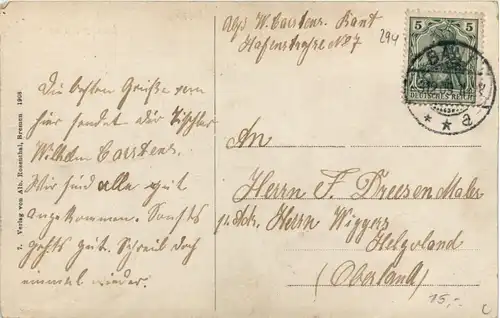 Abs. W. Carstens. Bant
Hafenstraße No 7
294
5 5
BANT
DEUTSCHES REICH
* * a
Die besten Grüße von
hier sendet dir Tischler
Wilhelm Carstens.
Wir sind alle gut
angekommen. Sonst
gehts gut. Schreib doch
einmal wieder.
An
Herrn F. Dreesen Maler
p. Adr. Herrn Wiggers
Helgoland
(Oberland)
15,-
c
7. Verlag von Alb. Rosenthal, Bremen 1908